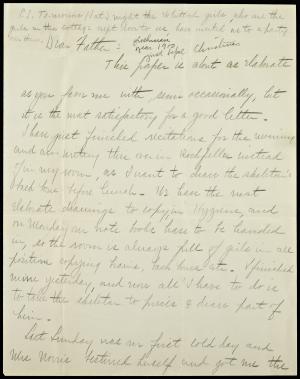 P.S. Tomorrow (Sat.) night the Whittall girls who are the
girls in the cottage next door to us, have invited us to a party
Dear Father:
Christmas
This paper is about as elaborate
as you favor me with some occasionally, but
it is the most satisfactory for a good letter.
I have just finished recitations for the morning
and am writing this over in Rockefeller instead
of in my room, as I want to draw the skeleton's
back bone before lunch. We have the most
elaborate drawings to copy in Hygiene, and
on Monday our note books have to be handed
in, so the room is always full of girls in all
positions copying brains, back bones etc. I finished
mine yesterday, and now all I have to do is
to take the skeleton to pieces & draw part of
him.
Last Sunday was our first cold day and
Mrs Morris festured herself and got me the